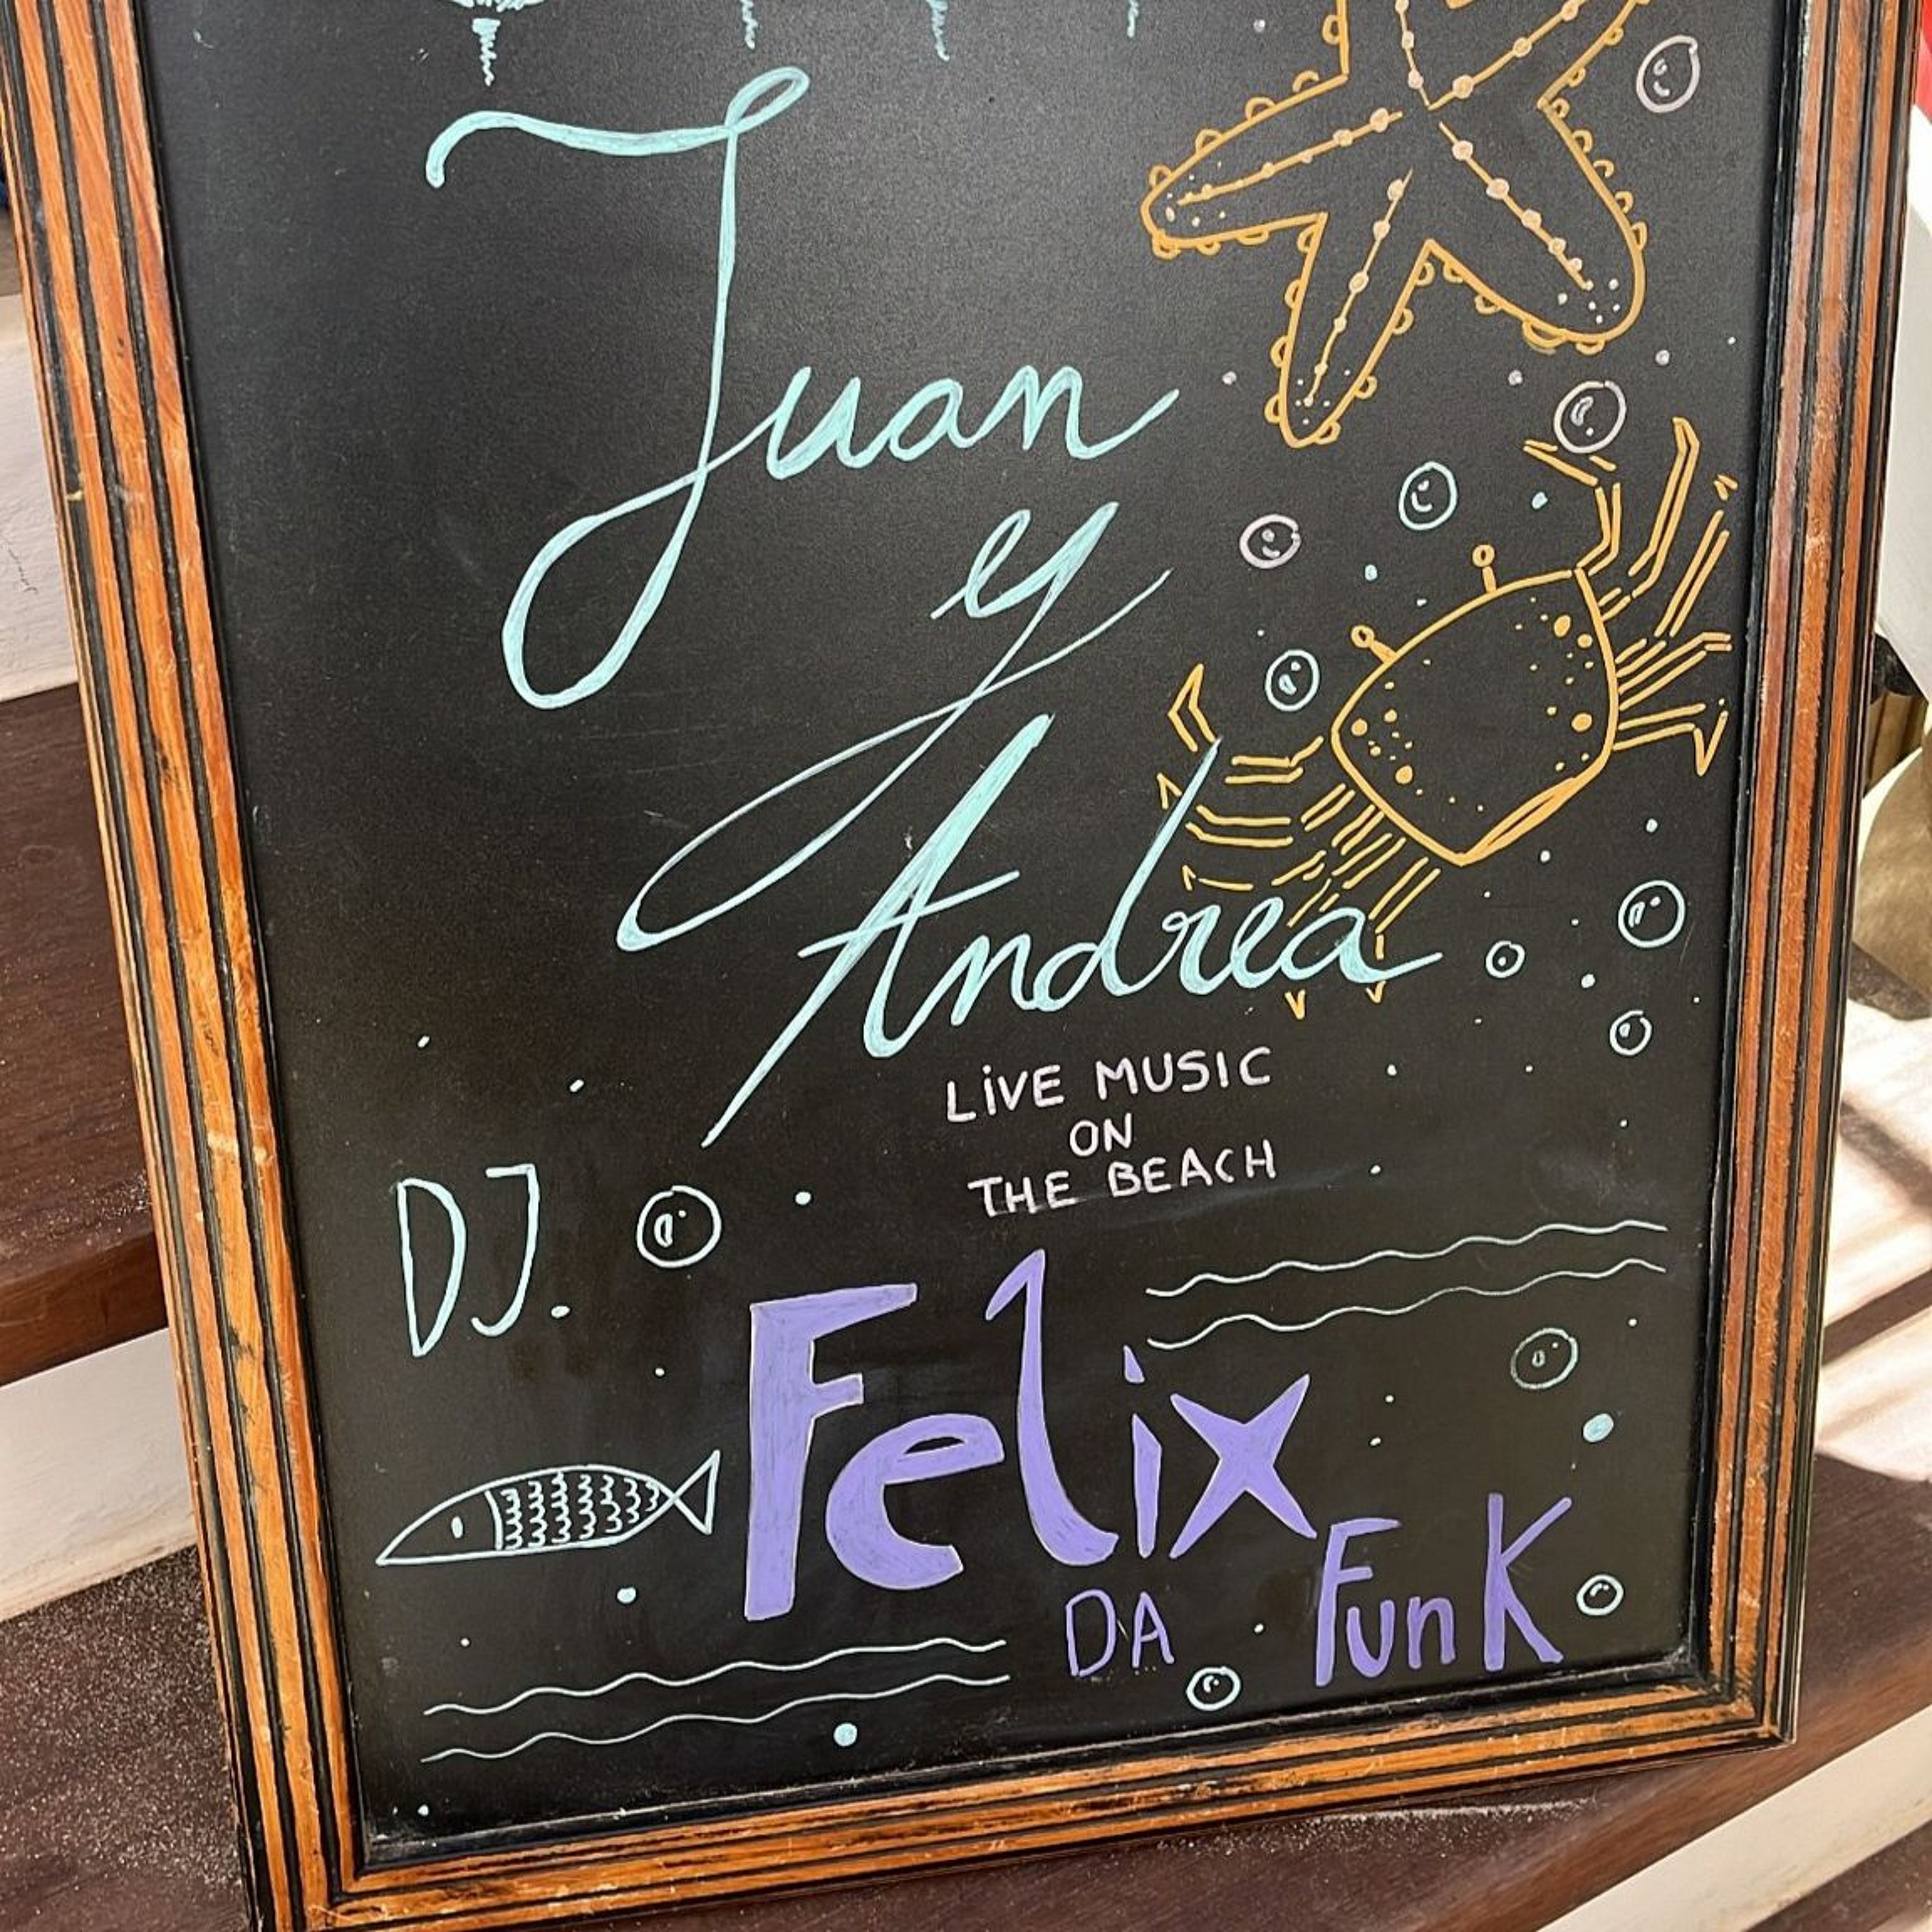 Juan
y
Andrea
LiVE MUSIC
ON
THE BEACH
DJ.
Felix
DA FunK